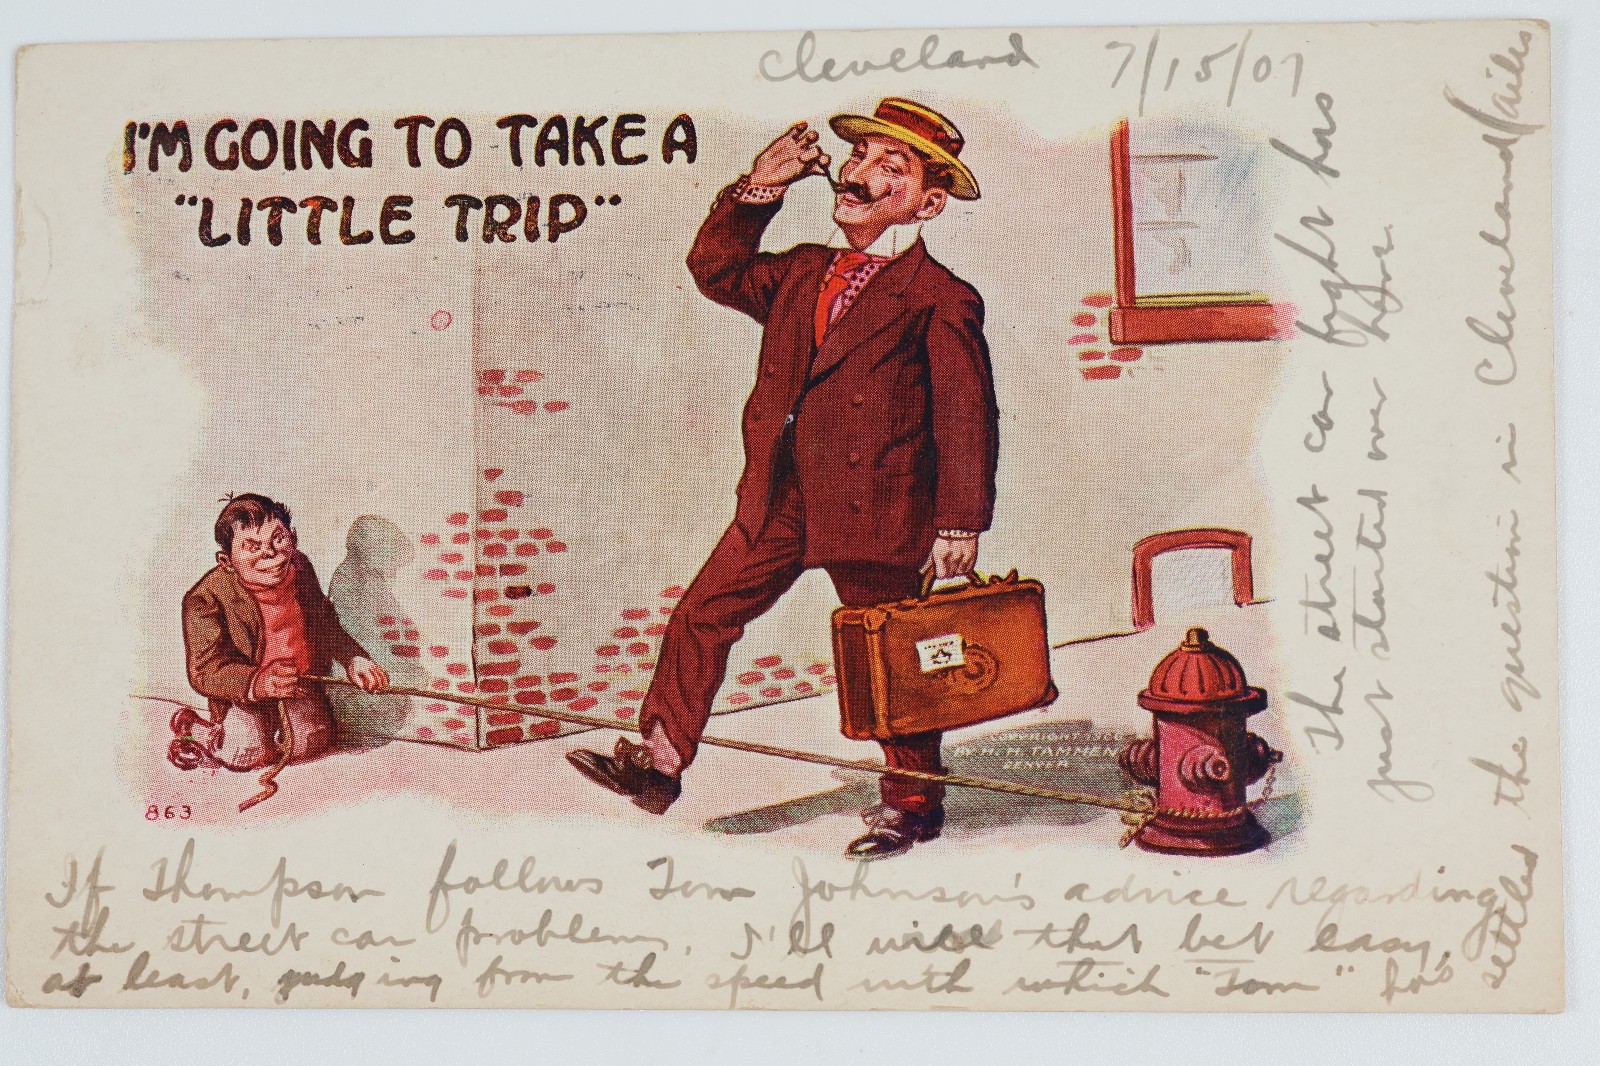 Cleveland 7/15/07
I'M GOING TO TAKE A
"LITTLE TRIP"
COPYRIGHT 1906
BY H. H. TAMMEN
DENVER
863
If Thompson follows Tom Johnson's advice regarding
the street car problem, I'll win that bet easy,
at least, judging from the speed with which "Tom" has
settled the question in Cleveland
The street car fight has
just started over here.